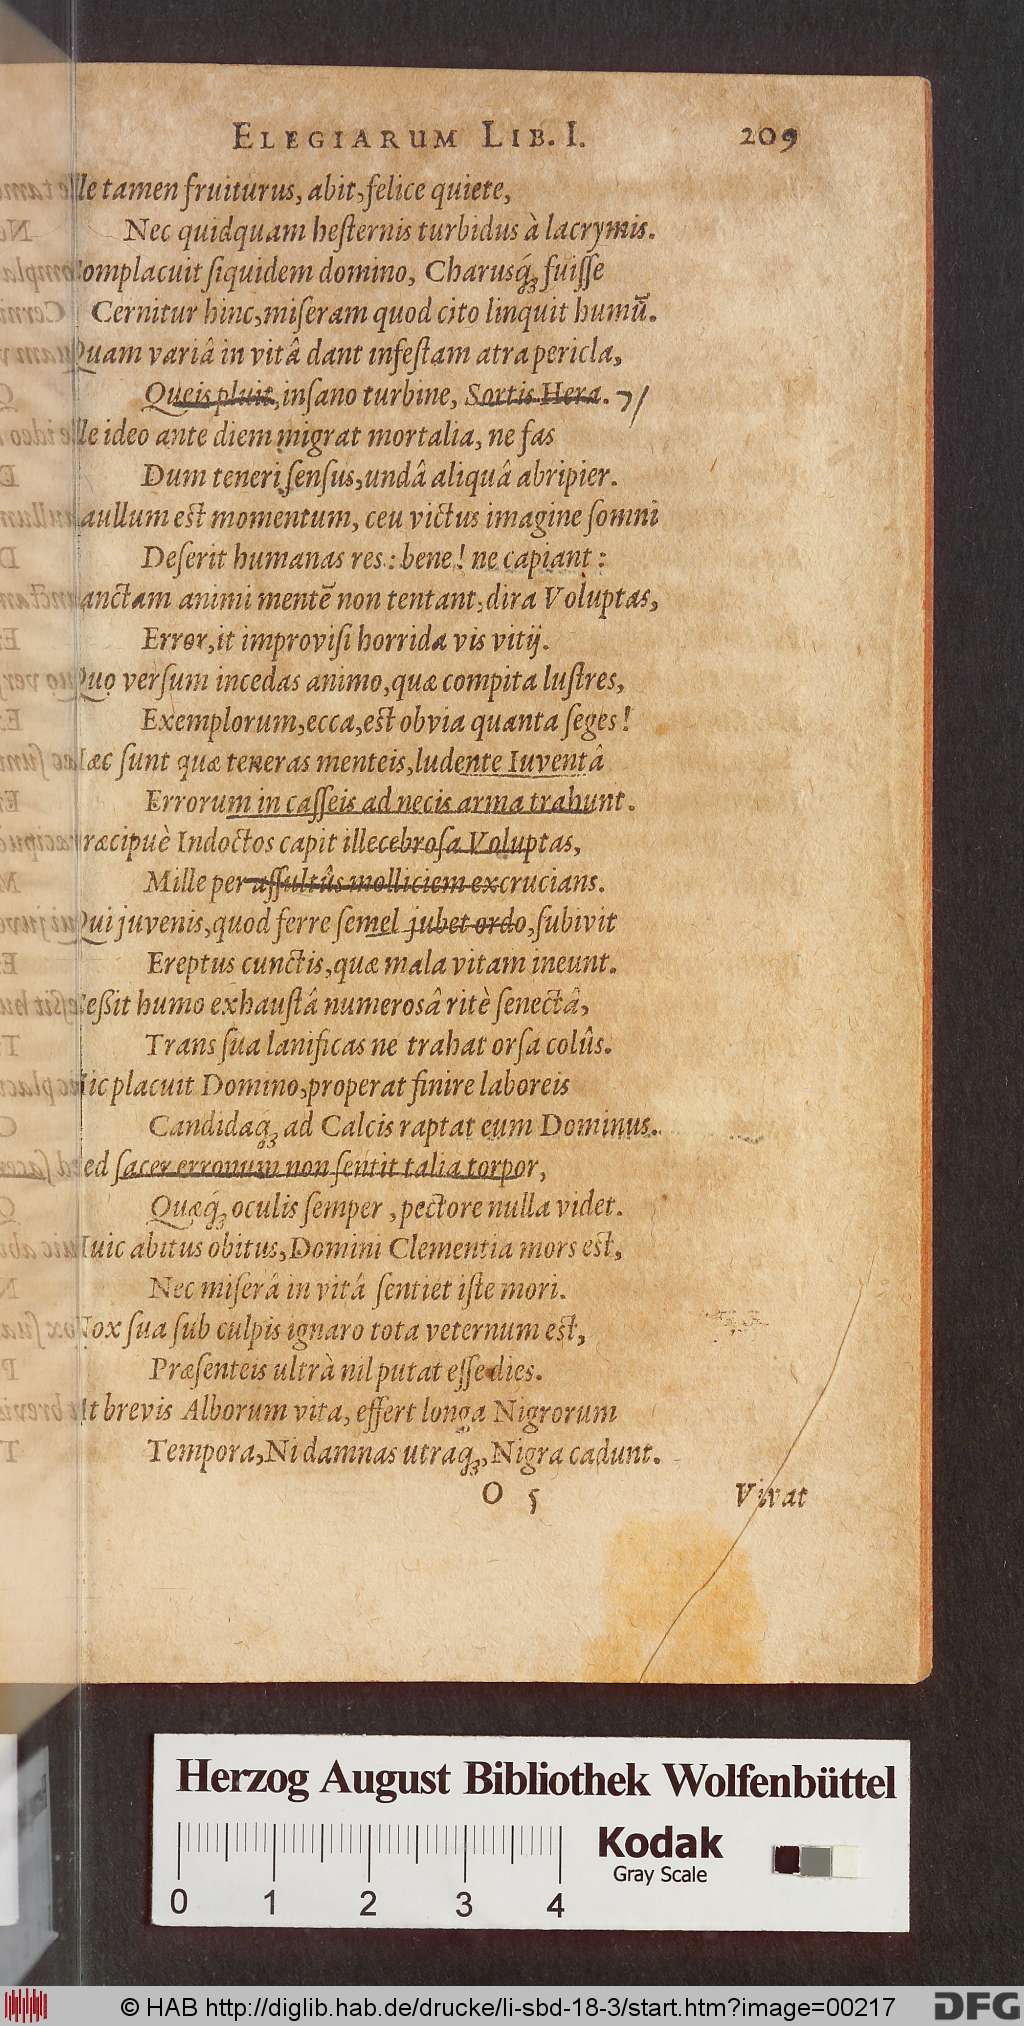 ELEGIARUM LIB. I. 209
lle tamen fruiturus, abit, felice quiete,
Nec quidquam hesternis turbidus à lacrymis.
Complacuit siquidem domino, Charusq́ꝫ fuisse
Cernitur hinc, miseram quod cito linquit humū.
Quam variâ in vitâ dant infestam atra pericla,
Queis pluit, insano turbine, Sortis Hera.
lle ideo ante diem migrat mortalia, ne fas
Dum teneri sensus, undâ aliquâ abripier.
aullum est momentum, ceu victus imagine somni
Deserit humanas res: bene! ne capiant:
anctam animi mentē non tentant, dira Voluptas,
Error, it improvisi horrida vis vitij.
Quo versum incedas animo, quæ compita lustres,
Exemplorum, ecca, est obvia quanta seges!
Hæc sunt quæ teneras menteis, ludente Iuventâ
Errorum in casseis ad necis arma trahunt.
ræcipuè Indoctos capit illecebrosa Voluptas,
Mille per assultûs molliciem excrucians.
Qui juvenis, quod ferre semel jubet ordo, subivit
Ereptus cunctis, quæ mala vitam ineunt.
Cessit humo exhaustâ numerosâ ritè senectâ,
Trans sua lanificas ne trahat orsa colûs.
Hic placuit Domino, properat finire laboreis
Candidaq́ꝫ ad Calcis raptat eum Dominus.
ed sacer erronum non sentit talia torpor,
Quæq́ꝫ oculis semper, pectore nulla videt.
Huic abitus obitus, Domini Clementia mors est,
Nec miserâ in vitâ sentiet iste mori.
Nox sua sub culpis ignaro tota veternum est,
Præsenteis ultrà nil putat esse dies.
At brevis Alborum vita, effert longa Nigrorum
Tempora, Ni damnas utraq́ꝫ, Nigra cadunt.
O 5 Vivat
Herzog August Bibliothek Wolfenbüttel
Kodak
Gray Scale
0 1 2 3 4
© HAB http://diglib.hab.de/drucke/li-sbd-18-3/start.htm?image=00217 DFG